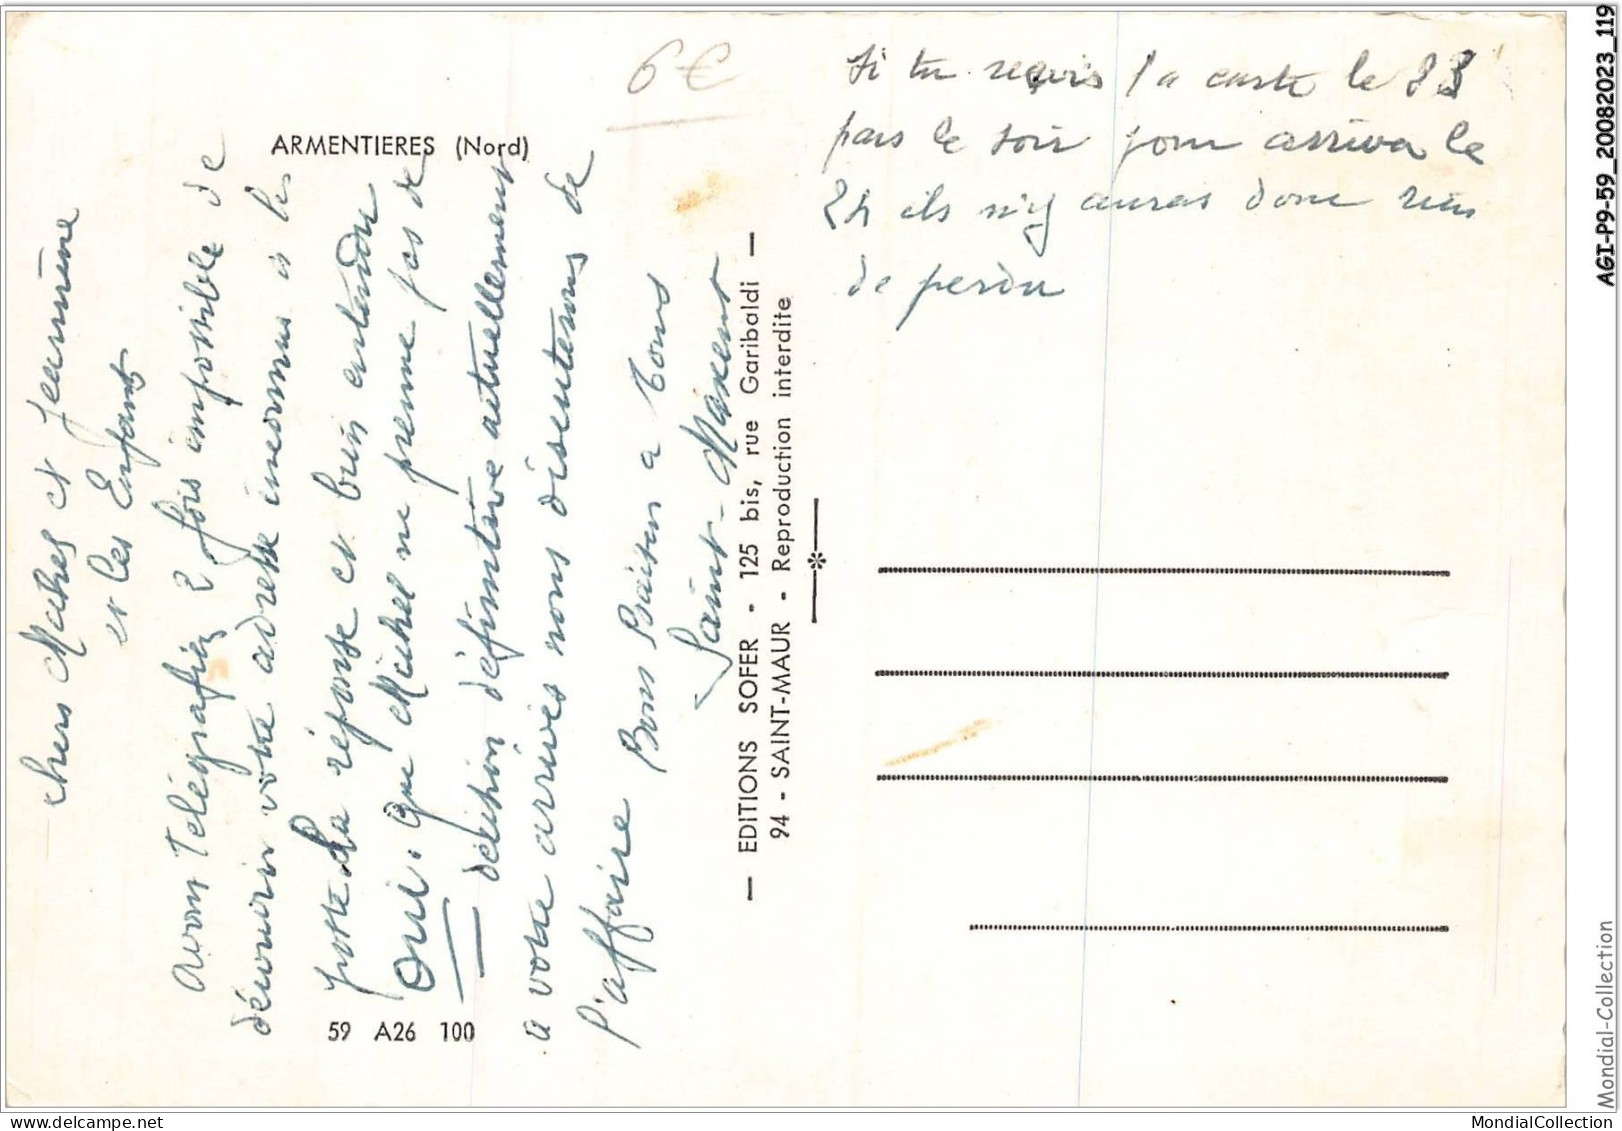 6€
ARMENTIERES (Nord)
chers Michel et Jeannine
et les Enfants
Avons telégrafiéz 2 fois impossible de
décourir votre adresse inconnus à les
poste La réponse et bien entendu
Oui. que Michel ne prenne pas de
décition définitive actuellement
a votre arrivés nous discuterons de
l'affaire Bons Baisers a tous
Saint-Maxent
— EDITIONS SOFER - 125 bis, rue Garibaldi —
94 - SAINT-MAUR - Reproduction interdite
59 A26 100
Si tu reçois la carte le 23
pars le soir pour arriver le
24 ils n'y auras donc rien
de perdu
AGI-P9-59_20082023_119
Mondial-Collection
MondialCollection